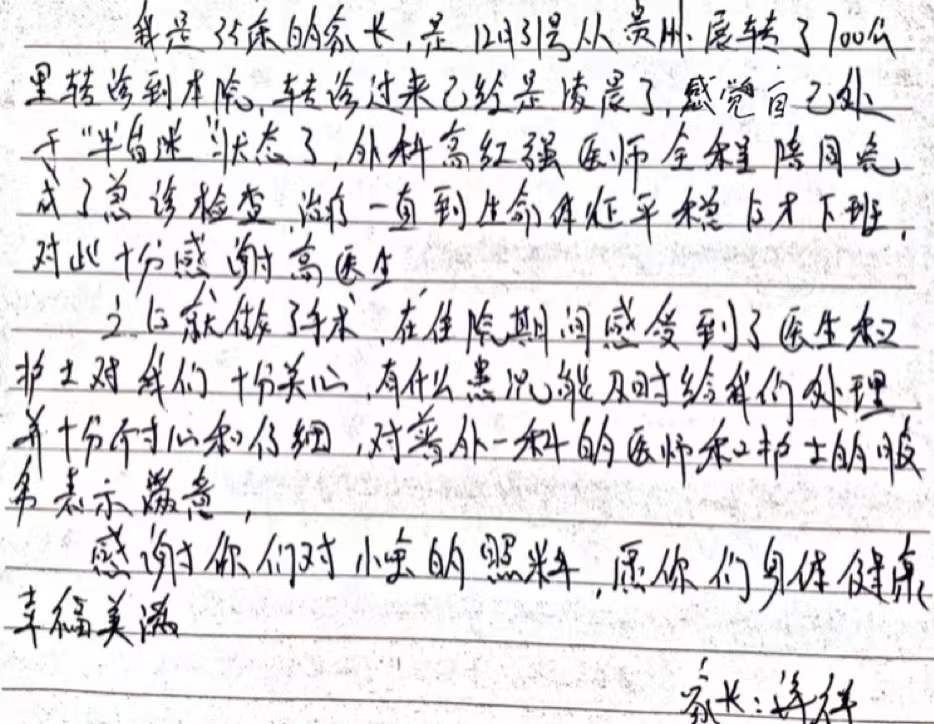 我是35床的家长,是12月31号从贵州.辗转了700公
里转诊到本院,转诊过来已经是凌晨了,感觉自己处
于“半昏迷”状态了,外科高红强医师全程陪同完
成了急诊检查,治疗一直到生命体征平稳后才下班,
对此十分感谢高医生
之后就做了手术,在住院期间感受到了医生和
护士对我们十分关心,有什么患况能及时给我们处理
并十分耐心和仔细,对普外一科的医师和护士的服
务表示满意,
感谢你们对小宝的照料,愿你们身体健康
幸福美满
家长: